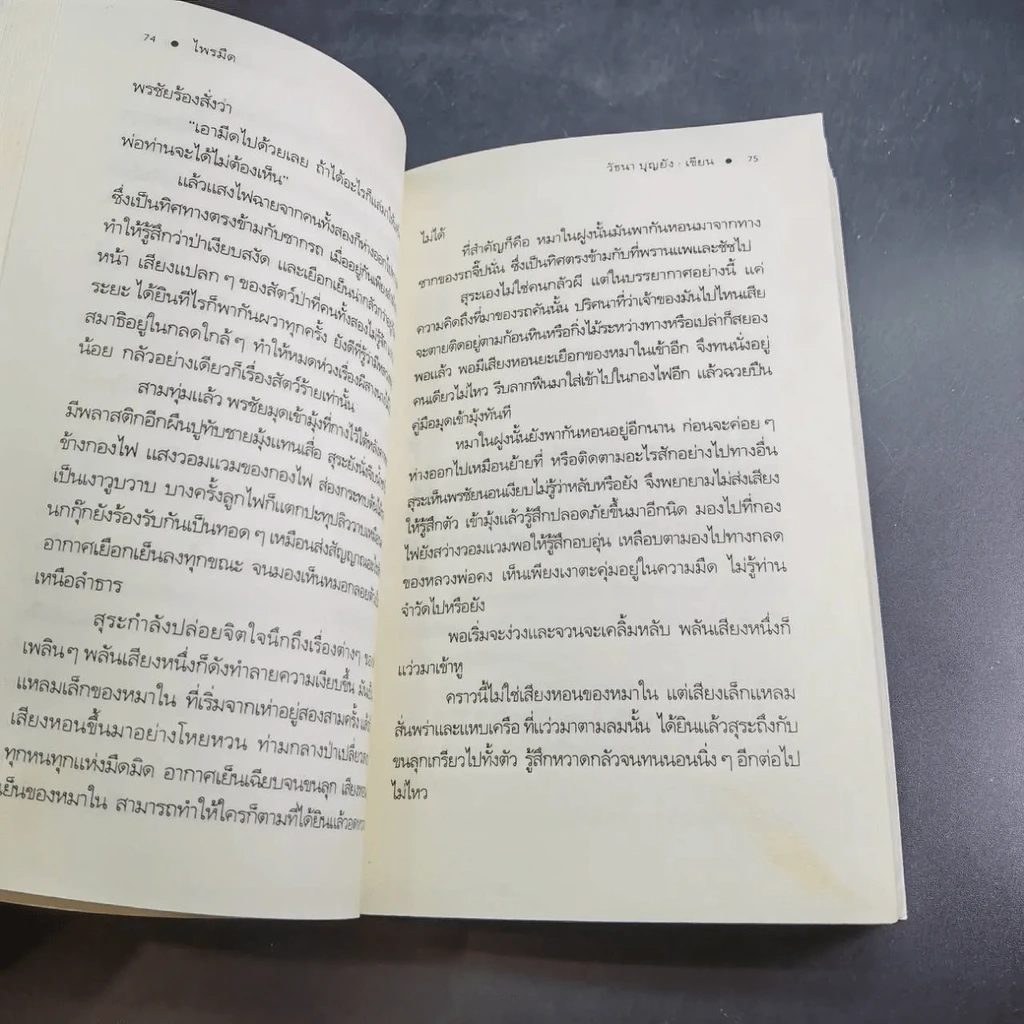 74 • ไพรมืด
พรชัยร้องสั่งว่า
"เอามีดไปด้วยเลย ถ้าได้อะไรก็
พ่อท่านจะได้ไม่ต้องเห็น"
แล้วแสงไฟฉายจากคนทั้งสองก็ห่างออกไป
ซึ่งเป็นทิศทางตรงข้ามกับซากรถ เมื่ออยู่กันเพียง
ทำให้รู้สึกว่าป่าเงียบสงัด และเยือกเย็นน่ากลัวกว่า
หน้า เสียงแปลก ๆ ของสัตว์ป่าที่คนทั้งสองไม่รู้จัก
ระยะ ได้ยินทีไรก็พากันผวาทุกครั้ง ยังดีที่รู้ว่า
สมาธิอยู่ในกลดใกล้ ๆ ทำให้หมดห่วงเรื่องผีสาง
น้อย กลัวอย่างเดียวก็เรื่องสัตว์ร้ายเท่านั้น
สามทุ่มแล้ว พรชัยมุดเข้ามุ้งที่กางไว้
มีพลาสติกอีกผืนปูทับชายมุ้งแทนเสื่อ สุระยังนั่ง
ข้างกองไฟ แสงวอมแวมของกองไฟ ส่องกระทบ
เป็นเงาวูบวาบ บางครั้งลูกไฟก็แตกปะทุปลิววาบ
นกกู๊กยังร้องรับกันเป็นทอด ๆ เหมือนส่งสัญญาณ
อากาศเยือกเย็นลงทุกขณะ จนมองเห็นหมอกลอย
เหนือลำธาร
สุระกำลังปล่อยจิตใจนึกถึงเรื่องต่างๆ
เพลินๆ พลันเสียงหนึ่งก็ดังทำลายความเงียบขึ้น
แหลมเล็กของหมาใน ที่เริ่มจากเห่าอยู่สองสามครั้ง
เสียงหอนขึ้นมาอย่างโหยหวน ท่ามกลางป่าเปลี่ยว
ทุกหนทุกแห่งมืดมิด อากาศเย็นเฉียบจนขนลุก
เย็นของหมาใน สามารถทำให้ใครก็ตามที่ได้ยินแล้ว
วัธนา บุญยัง · เขียน • 75
ไม่ได้
ที่สำคัญก็คือ หมาในฝูงนั้นมันพากันหอนมาจากทาง
ซากของรถจี๊ปนั่น ซึ่งเป็นทิศตรงข้ามกับที่พรานแพและชัชไป
สุระเองไม่ใช่คนกลัวผี แต่ในบรรยากาศอย่างนี้ แค่
ความคิดถึงที่มาของรถคันนั้น ปริศนาที่ว่าเจ้าของมันไปไหนเสีย
จะตายติดอยู่ตามก้อนหินหรือกิ่งไม้ระหว่างทางหรือเปล่าก็สยอง
พอแล้ว พอมีเสียงหอนยะเยือกของหมาในเข้าอีก จึงทนนั่งอยู่
คนเดียวไม่ไหว รีบลากฟืนมาใส่เข้าไปในกองไฟอีก แล้วฉวยปืน
คู่มือมุดเข้ามุ้งทันที
หมาในฝูงนั้นยังพากันหอนอยู่อีกนาน ก่อนจะค่อย ๆ
ห่างออกไปเหมือนย้ายที่ หรือติดตามอะไรสักอย่างไปทางอื่น
สุระเห็นพรชัยนอนเงียบไม่รู้ว่าหลับหรือยัง จึงพยายามไม่ส่งเสียง
ให้รู้สึกตัว เข้ามุ้งแล้วรู้สึกปลอดภัยขึ้นมาอีกนิด มองไปที่กอง
ไฟยังสว่างวอมแวมพอให้รู้สึกอบอุ่น เหลือบตามองไปทางกลด
ของหลวงพ่อคง เห็นเพียงเงาตะคุ่มอยู่ในความมืด ไม่รู้ท่าน
จำวัดไปหรือยัง
พอเริ่มจะง่วงและจวนจะเคลิ้มหลับ พลันเสียงหนึ่งก็
แว่วมาเข้าหู
คราวนี้ไม่ใช่เสียงหอนของหมาใน แต่เสียงเล็กแหลม
สั่นพร่าและแหบเครือ ที่แว่วมาตามลมนั้น ได้ยินแล้วสุระถึงกับ
ขนลุกเกรียวไปทั้งตัว รู้สึกหวาดกลัวจนทนนอนนิ่ง ๆ อีกต่อไป
ไม่ไหว